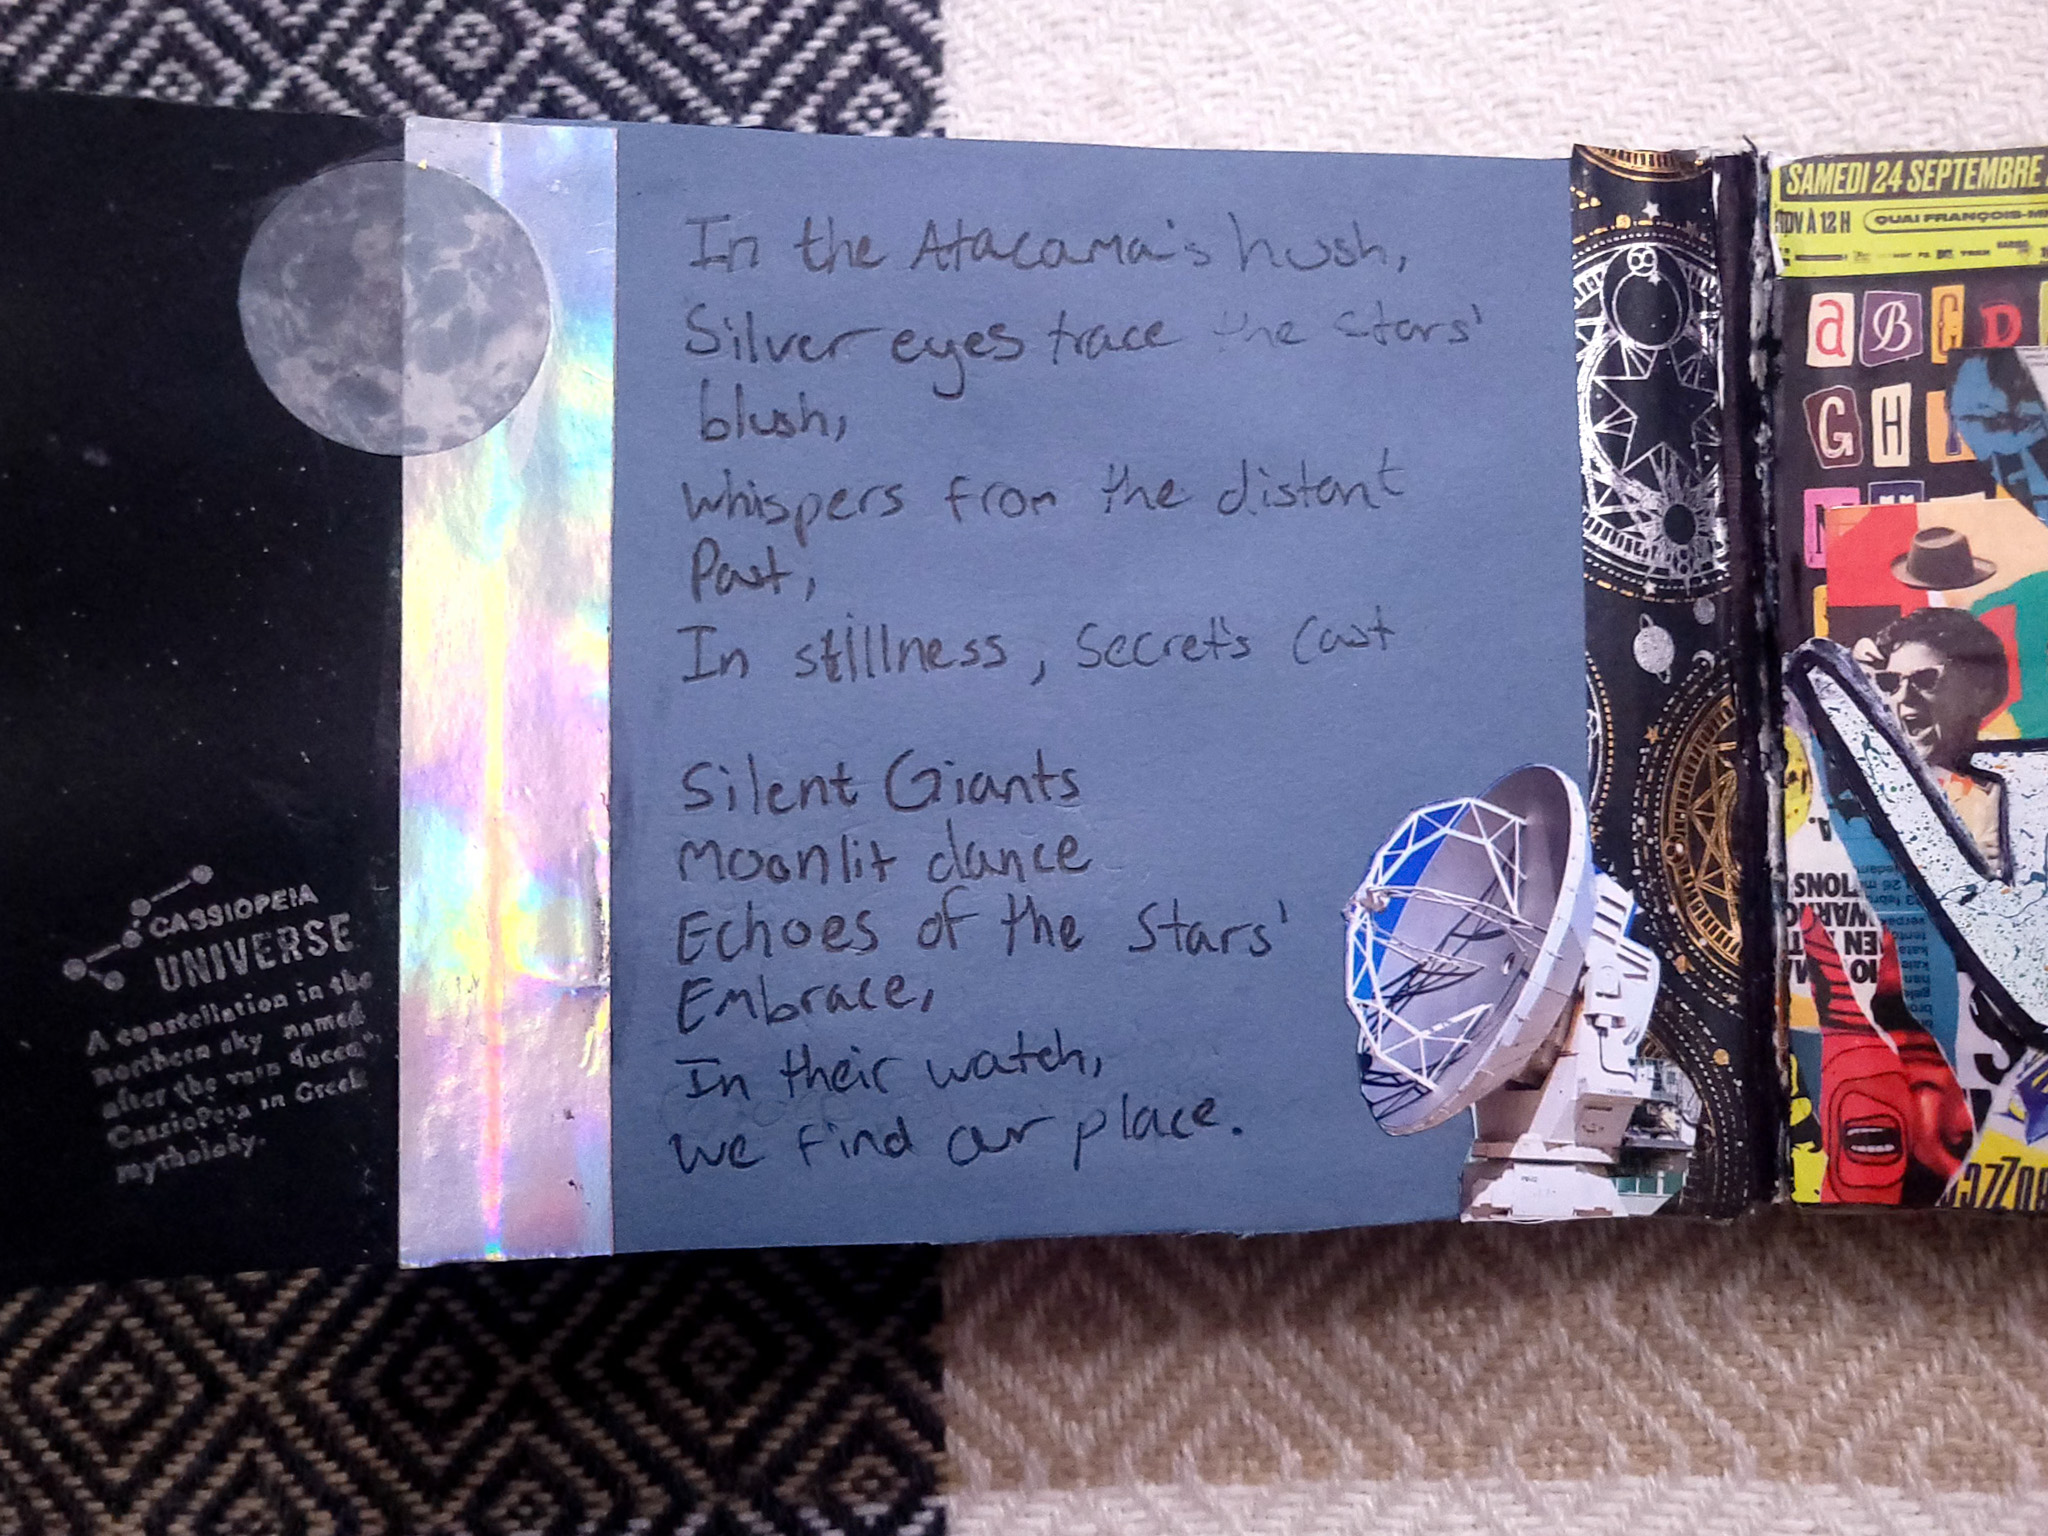 In the Atacama's hush,
Silver eyes trace the stars'
blush,
whispers from the distant
Past,
In stillness, Secrets cast
Silent Giants
Moonlit dance
Echoes of the Stars'
Embrace,
In their watch,
we find our place.
CASSIOPEIA
UNIVERSE
A constellation in the
northern sky named
after the vain queen
Cassiopeia in Greek
mythology.
SAMEDI 24 SEPTEMBRE
RDV À 12 H
QUAI FRANÇOIS-M
a B C D
G H I